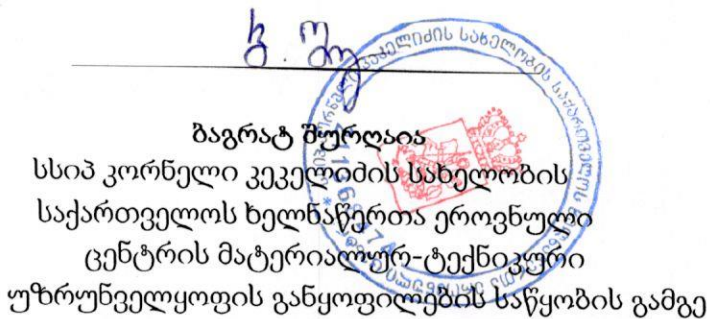 ბაგრატ შურღაია
სსიპ კორნელი კეკელიძის სახელობის
საქართველოს ხელნაწერთა ეროვნული
ცენტრის მატერიალურ-ტექნიკური
უზრუნველყოფის განყოფილების საწყობის გამგე